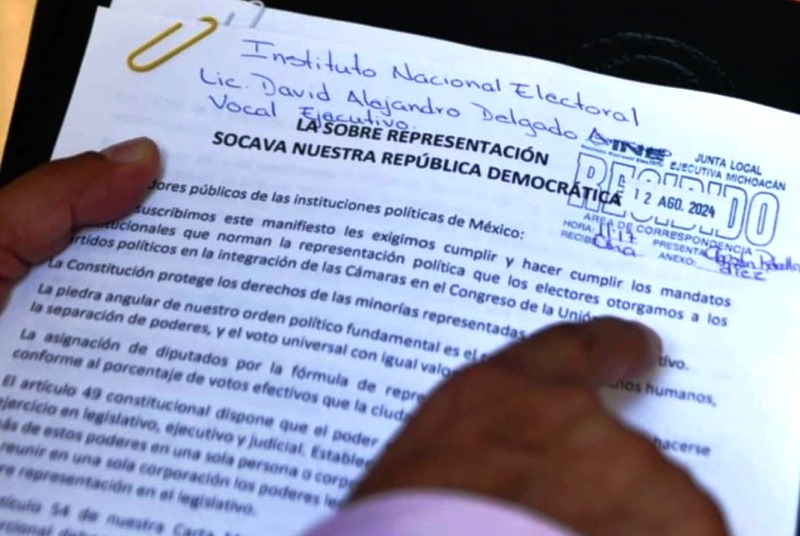 Instituto Nacional Electoral
Lic. David Alejandro Delgado
Vocal Ejecutivo.
INE
JUNTA LOCAL
EJECUTIVA MICHOACÁN
RECIBIDO
12 AGO. 2024
AREA DE CORRESPONDENCIA
HORA: 11:17 PRESENTA
RECIBE ANEXO: diez
LA SOBRE REPRESENTACIÓN
SOCAVA NUESTRA REPÚBLICA DEMOCRÁTICA
dores públicos de las instituciones políticas de México:
suscribimos este manifiesto les exigimos cumplir y hacer cumplir los mandatos
itucionales que norman la representación política que los electores otorgamos a los
artidos políticos en la integración de las Cámaras en el Congreso de la Unión
La Constitución protege los derechos de las minorías representadas tivo.
La piedra angular de nuestro orden político fundamental es el humanos,
la separación de poderes, y el voto universal con igual valor
La asignación de diputados por la fórmula de repre hacerse
conforme al porcentaje de votos efectivos que la ciuda
El artículo 49 constitucional dispone que el poder
ejercicio en legislativo, ejecutivo y judicial. Establec
más de estos poderes en una sola persona o corpo
reunir en una sola corporación los poderes le
re representación en el legislativo.
tículo 54 de nuestra Carta